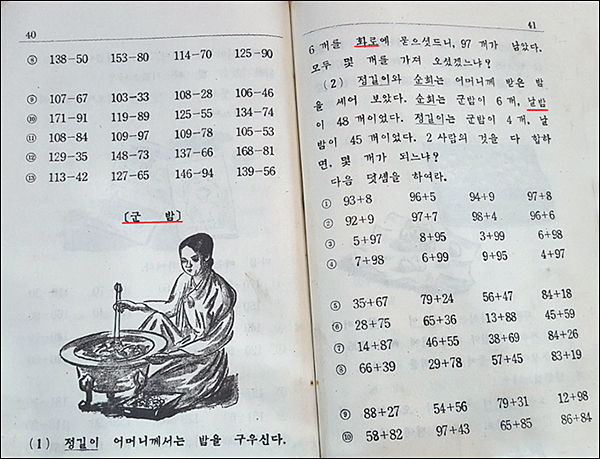 40
⑧ 138-50 153-80 114-70 125-90
⑨ 107-67 103-33 108-28 106-46
⑩ 171-91 119-89 125-55 134-74
⑪ 108-84 109-97 109-78 105-53
⑫ 129-35 148-73 137-66 168-81
⑬ 113-42 127-65 146-94 139-56
[군 밤]
(1) 정길이 어머니께서는 밤을 구우신다.
41
6 개를 화로에 묻으셨드니, 97 개가 남았다.
모두 몇 개를 가져 오셨겠느냐?
(2) 정길이와 순희는 어머니께 받은 밤
을 세어 보았다. 순희는 군밤이 6 개, 날밤
이 48 개이었다. 정길이는 군밤이 4 개, 날
밤이 45 개이었다. 2 사람의 것을 다 합하
면, 몇 개가 되느냐?
다음 덧셈을 하여라.
① 93+8 96+5 94+9 97+8
② 92+9 97+7 98+4 96+6
③ 5+97 8+95 3+99 6+98
④ 7+98 6+99 9+95 4+97
⑤ 35+67 79+24 56+47 84+18
⑥ 28+75 65+36 13+88 45+59
⑦ 14+87 46+55 38+69 84+26
⑧ 66+39 29+78 57+45 83+19
⑨ 88+27 54+56 79+31 12+98
⑩ 58+82 97+43 65+85 86+84